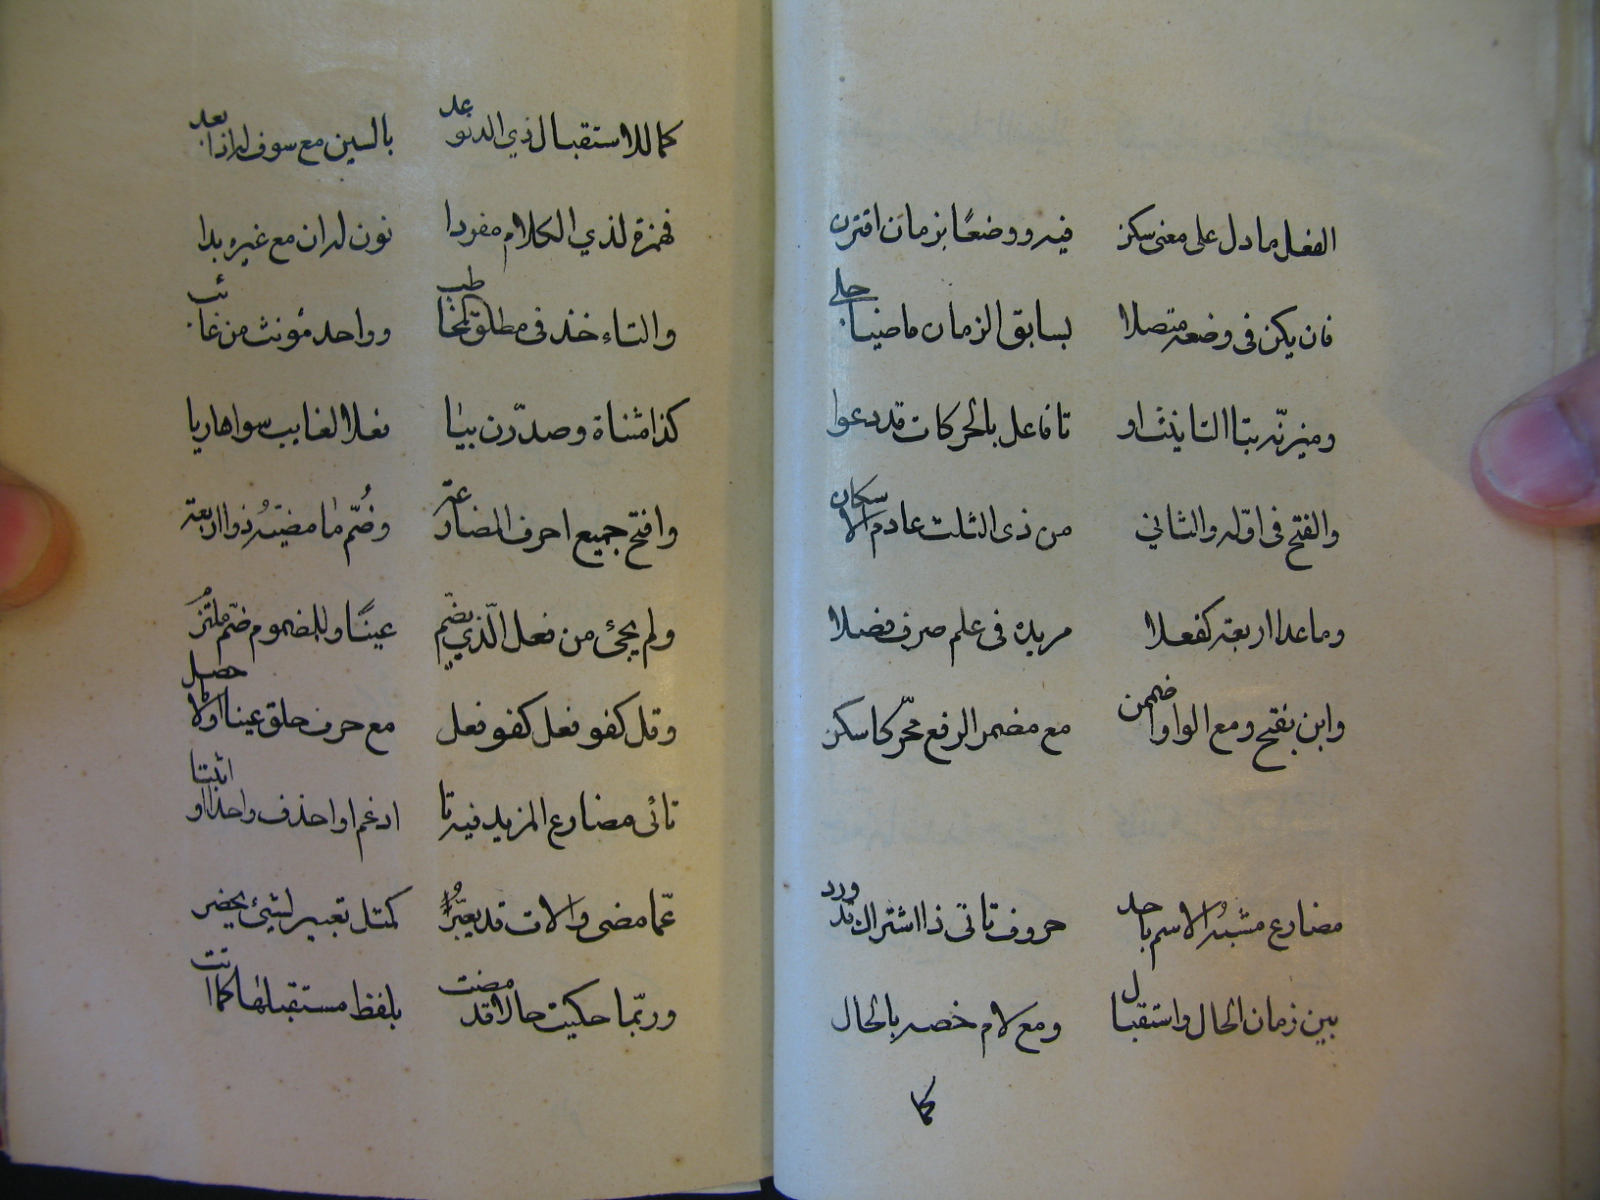 الفعل ما دل على معنى سكن فيه ووضعًا بزمان اقترن
فان يكن فى وضعه متصلا بسابق الزمان ماضيا جلى
وميزنّه بتا التانيث او تا فاعل بالحركات قد دعوا
والفتح فى اوّله والثاني من ذى الثلث عادم الاسكان
وما عدا اربعة كفعلا مريده فى علم صرف فضلا
وابن بفتح ومع الواو اضممن مع مضمر الرفع محرّكا سكن
مضارع مشبه الاسم باحد حروف تاتى ذا اشتراك قد ورد
بين زمان الحال واستقبال ومع لام خصه بالحال
كما
كما للاستقبال ذي الدنو عد بالسين مع سوف له اذا بعد
فهمزة لذي الكلام مفردا نون له ان مع غيره بدا
والتاء خذ فى مطلق المخاطب وواحد مؤنث من غائب
كذا مثناة وصدّرن بيا فعلا لغايب سواها رويا
وافتح جميع احرف المضارعة وضُمّ ما مضيّه ذو اربعة
ولم يجئ من فعل الّذي يضم عينًا وللمضموم ضمّ ملتزم
وقل كفو فعل كفو فعل مع حرف حلق عينا او لا حصل
تائى مضارع المزيد فيه تا ادغم او احذف واحدا او اثبتا
عمّا مضى والات قد يعبّر كمثل تعبير لشيئ يحضر
وربّما حكيت حالا قد مضت بلفظ مستقبلها كما انت